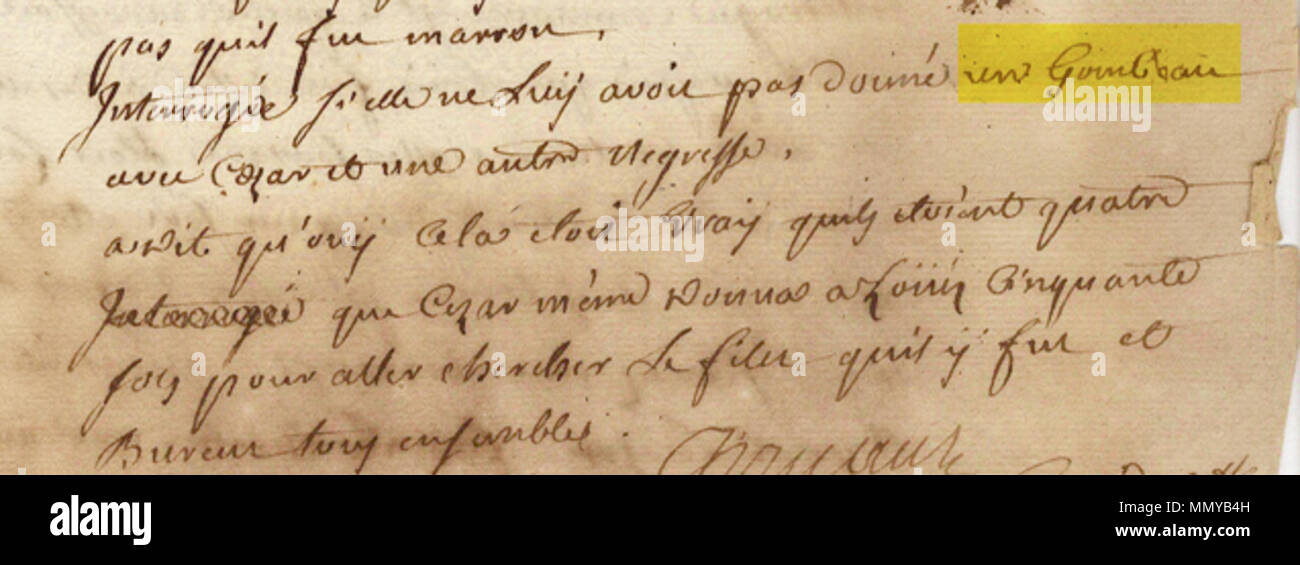 pas quil fut marron,
Interrogée si elle ne Luy avoit pas donné un Gombeau
avec Cezar et une autre Negresse,
a dit qu'ouy Cela etoit Vray quils etoient quatre
Interrogé que Cezar même donna a Loüis Cinquante
sols pour aller chercher Le filet quil ÿ fut et
Burent tous ensembles.
alamy
Image ID: MMYB4H
www.alamy.com